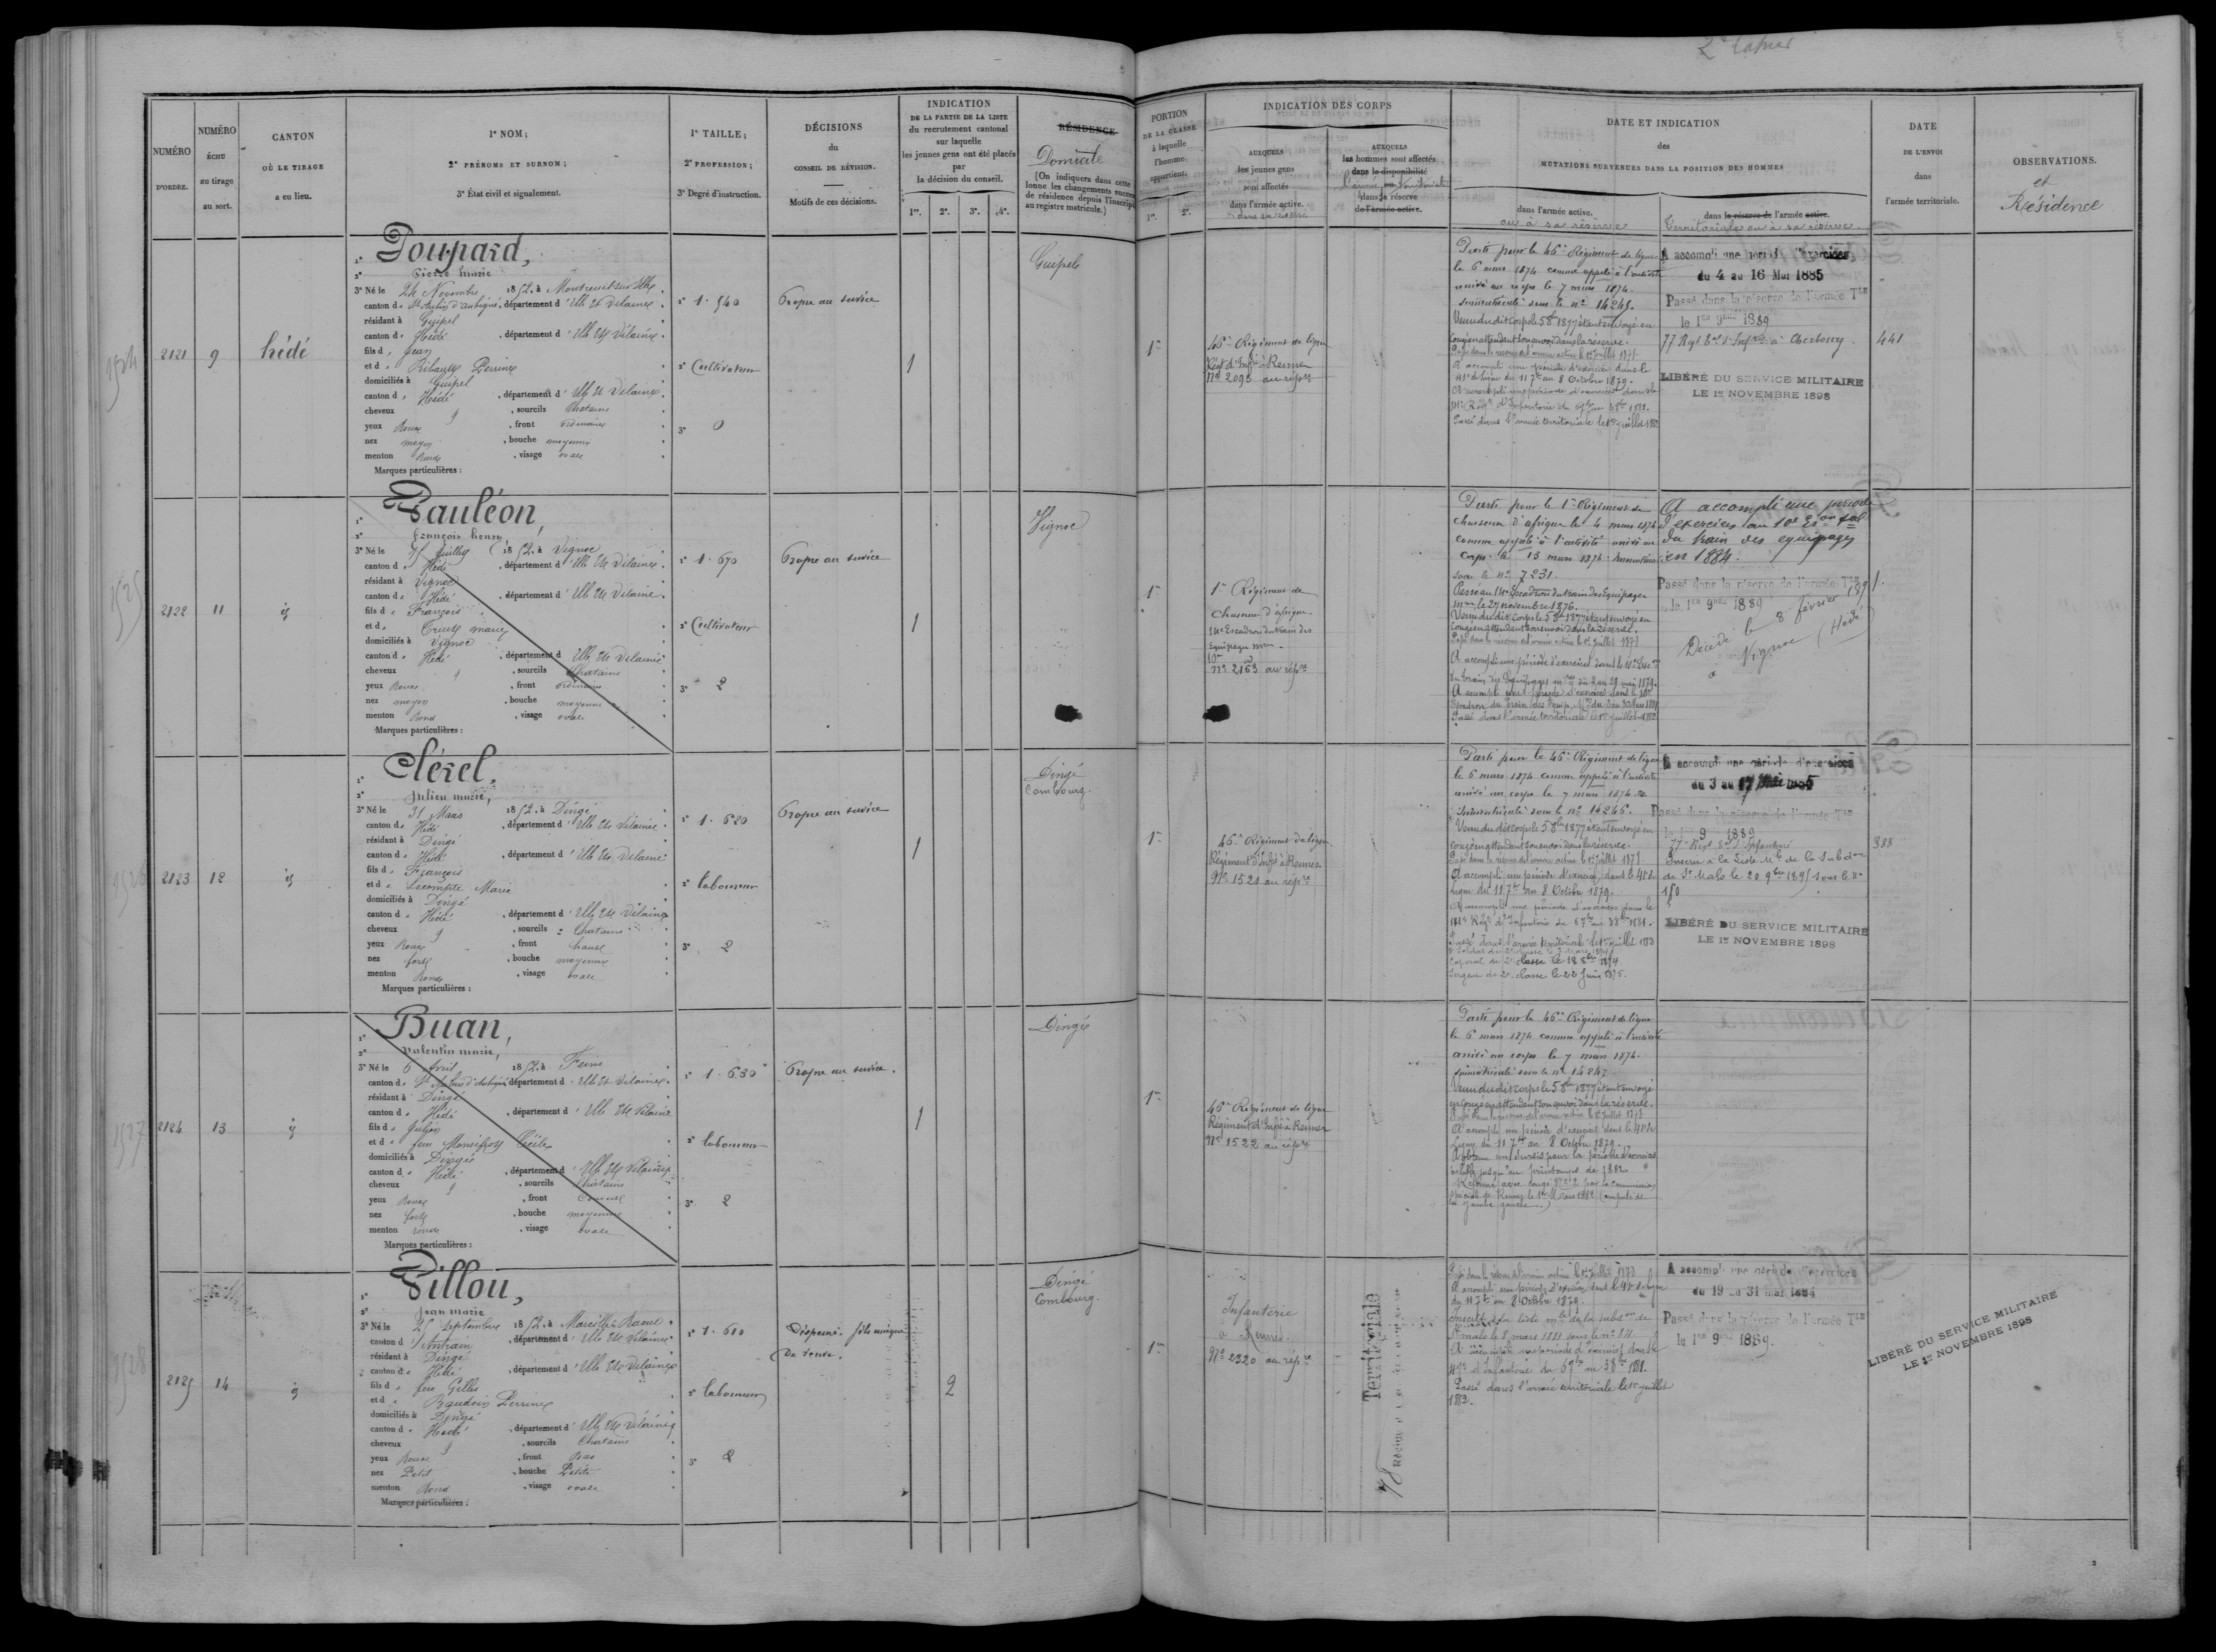 2e Cahier
NUMÉRO D'ORDRE.
NUMÉRO ÉCHU au tirage au sort.
CANTON OÙ LE TIRAGE a eu lieu.
1° NOM;
2° PRÉNOMS ET SURNOM;
3° État civil et signalement.
1° TAILLE;
2° PROFESSION;
3° Degré d'instruction.
DÉCISIONS du CONSEIL DE RÉVISION.
Motifs de ces décisions.
INDICATION
DE LA PARTIE DE LA LISTE
du recrutement cantonal
sur laquelle
les jeunes gens ont été placés
par
la décision du conseil.
1re. 2e. 3e. 4e.
RÉSIDENCE
Domicile
(On indiquera dans cette
lonne les changements
de résidence depuis
au registre matricule.)
PORTION
DE LA CLASSE
à laquelle
l'homme
appartient.
1re. 2e.
INDICATION DES CORPS
AUXQUELS
les jeunes gens
sont affectés
dans l'armée active.
AUXQUELS
les hommes sont affectés
dans la disponibilité
dans la réserve
de l'armée active.
DATE ET INDICATION
des
MUTATIONS SURVENUES DANS LA POSITION DES HOMMES
dans l'armée active.
ou à sa réserve
dans la réserve de l'armée active.
Territoriale ou à sa réserve.
DATE
DE L'ENVOI
dans
l'armée territoriale.
OBSERVATIONS.
et
Résidence
1524
2121
9
hédé
1° Poupard,
2° Pierre marie
3° Né le 24 Novembre 1852, à Montreuil sur Ille
canton de St Aubin d'Aubigné, département d'Ille et Vilaine.
résidant à Guipel
canton de Hédé, département d'Ille et Vilaine.
fils de Jean
et de Ribault Perrine
domiciliés à Guipel
canton de Hédé, département d'Ille et Vilaine.
cheveux, sourcils Chatains
yeux Roux, front ordinaire
nez moyen, bouche moyenne
menton Rond, visage ovale
Marques particulières :
1° 1.540
2° Cultivateur
3° 0
Propre au service
1
Guipel
1re
46e Régiment de ligne
Régt d'Infie à Rennes
No 2093 au répre
Parti pour le 46e Régiment de ligne
le 6 mars 1874 comme appelé à l'activité
arrivé au corps le 7 mars 1874.
immatriculé sous le no 14245.
Venu du dit corps le 5 8bre 1877 étant envoyé en
congé en attendant son envoi dans la réserve.
A accompli une période d'exercices dans le
41e de ligne du 11 7bre au 8 Octobre 1879.
Passé dans l'armée territoriale le 1er juillet 1882
A accompli une période d'exercices
du 4 au 16 Mai 1885
Passé dans la réserve de l'armée Tle
le 1er 9bre 1889
77 Regt Bal d'Infrie à Cherbourg.
LIBÉRÉ DU SERVICE MILITAIRE
LE 1er NOVEMBRE 1898
441
1525
2122
11
id
1° Pauléon,
2° François henry
3° Né le Juillet 1852, à Vignoc
canton de Hédé, département d'Ille et Vilaine.
résidant à Vignoc
canton de Hédé, département d'Ille et Vilaine.
fils de François
domiciliés à Vignoc
canton de Hédé, département d'Ille et Vilaine
cheveux, sourcils Chatains
yeux Roux, front ordinaire
nez moyen, bouche moyenne
menton Rond, visage ovale
Marques particulières :
1° 1.670
2° Cultivateur
3° 2
Propre au service
1
Vignoc
1re
1er Régiment de
Chasseurs d'afrique
14e Escadron du train des
équipages mres
10e
No 2163 au répre
Parti pour le 1er Régiment de
chasseurs d'afrique le 4 mars 1874
comme appelé à l'activité arrivé au
corps le 13 mars 1874.
sous le no 7231.
Passé au 14e Escadron du train des Equipages
mres le 27 novembre 1876.
Venu du dit corps le 5 8bre 1877 étant envoyé en
congé en attendant son envoi dans la réserve.
Passé dans l'armée territoriale le 1er juillet 1882
A accompli une période
d'exercices au 10e Eson tal
du train des equipages
en 1884.
Passé dans la réserve de l'armée Tle
le 1er 9bre 1889
Décédé le 8 février 1891
à Vignoc (Hédé)
1526
2123
12
id
1° Clérel,
2° Julien marie,
3° Né le 31 Mars 1852, à Dingé
canton de Hédé, département d'Ille et Vilaine.
résidant à Dingé
canton de Hédé, département d'Ille et Vilaine
fils de François
et de Lecompte Marie
domiciliés à Dingé
canton de Hédé, département d'Ille et Vilaine
cheveux, sourcils Chatains
yeux Roux, front haut
nez fort, bouche moyenne
menton Rond, visage ovale
Marques particulières :
1° 1.620
2° laboureur
3° 2
Propre au service
1
Dingé
Combourg.
1re
46e Régiment de ligne
Régiment d'Infie à Rennes
No 1521 au répre
Parti pour le 46e Régiment de ligne
le 6 mars 1874 comme appelé à l'activité
arrivé au corps le 7 mars 1874
immatriculé sous le no 14246.
Venu du dit corps le 5 8bre 1877 étant envoyé en
congé en attendant son envoi dans la réserve.
A accompli une période d'exercices dans le 41e de
ligne du 11 7bre au 8 Octobre 1879.
Caporal de 2e classe le 18 8bre 1874
Sergent de 2e classe le 22 Juin 1875.
A accompli une période d'exercices
du 3 au 17 Mai 1885
Passé dans la réserve de l'armée Tle
le 1er 9 1889
77e Régt d'Infanterie
Inscrit à la Liste Mle de la Subdon
de St Malo le 20 9bre 1895 sous le No
150
LIBÉRÉ DU SERVICE MILITAIRE
LE 1er NOVEMBRE 1898
388
1527
2124
13
id
1° Buan,
2° Valentin marie,
3° Né le 6 Avril 1852, à Feins
canton de St Aubin d'Aubigné, département d'Ille et Vilaine.
résidant à Dingé
canton de Hédé, département d'Ille et Vilaine
fils de Julien
domiciliés à Dingé
canton de Hédé, département d'Ille et Vilaine
cheveux, sourcils Chatains
yeux Roux, front
nez fort, bouche moyenne
menton rond, visage ovale
Marques particulières :
1° 1.630
2° laboureur
3° 2
Propre au service.
1
Dingé
1re
46e Régiment de ligne
Régiment d'Infie à Rennes
No 1522 au répre
Parti pour le 46e Régiment de ligne
le 6 mars 1874 comme appelé à l'activité
arrivé au corps le 7 mars 1874.
immatriculé sous le no 14247
Venu du dit corps le 5 8bre 1877 étant envoyé
en congé en attendant son envoi dans la réserve.
A accompli une période d'exercices dans le 41e de
Ligne du 11 7bre au 8 Octobre 1879.
A obtenu un sursis pour la période d'exercices
valable jusqu'au printemps de 1882
Réformé avec congé No 2 par la commission
spéciale de Rennes le 1er Mars 1882 (amputé de
la jambe gauche.)
1528
2125
14
id
1° Pillou,
2° Jean marie
3° Né le 25 septembre 1852, à Marcillé Raoul
canton d'Antrain, département d'Ille et Vilaine
résidant à Dingé
canton de Hédé, département d'Ille et Vilaine
fils de feu Gilles
et de Baudoin Perrine
domiciliés à Dingé
canton de Hédé, département d'Ille et Vilaine
cheveux, sourcils Chatains
yeux Roux, front
nez Petit, bouche Petite
menton Rond, visage ovale
Marques particulières :
1° 1.610
2° laboureur
3° 2
Dispensé. fils unique
de veuve.
2
Dingé
Combourg.
1re
Infanterie
à Rennes.
No 2320 au répre
Territoriale
78
A accompli une période d'exercices dans le 41e de ligne
du 11 7bre au 8 Octobre 1879.
Inscrit sur la liste mle de la subdon de
St malo le 8 mars 1881
Passé dans l'armée territoriale le 1er juillet
1882.
A accompli une période d'exercices
du 19 au 31 mai 1884
Passé dans la réserve de l'armée Tle
le 1er 9bre 1889.
LIBÉRÉ DU SERVICE MILITAIRE
LE 1er NOVEMBRE 1898